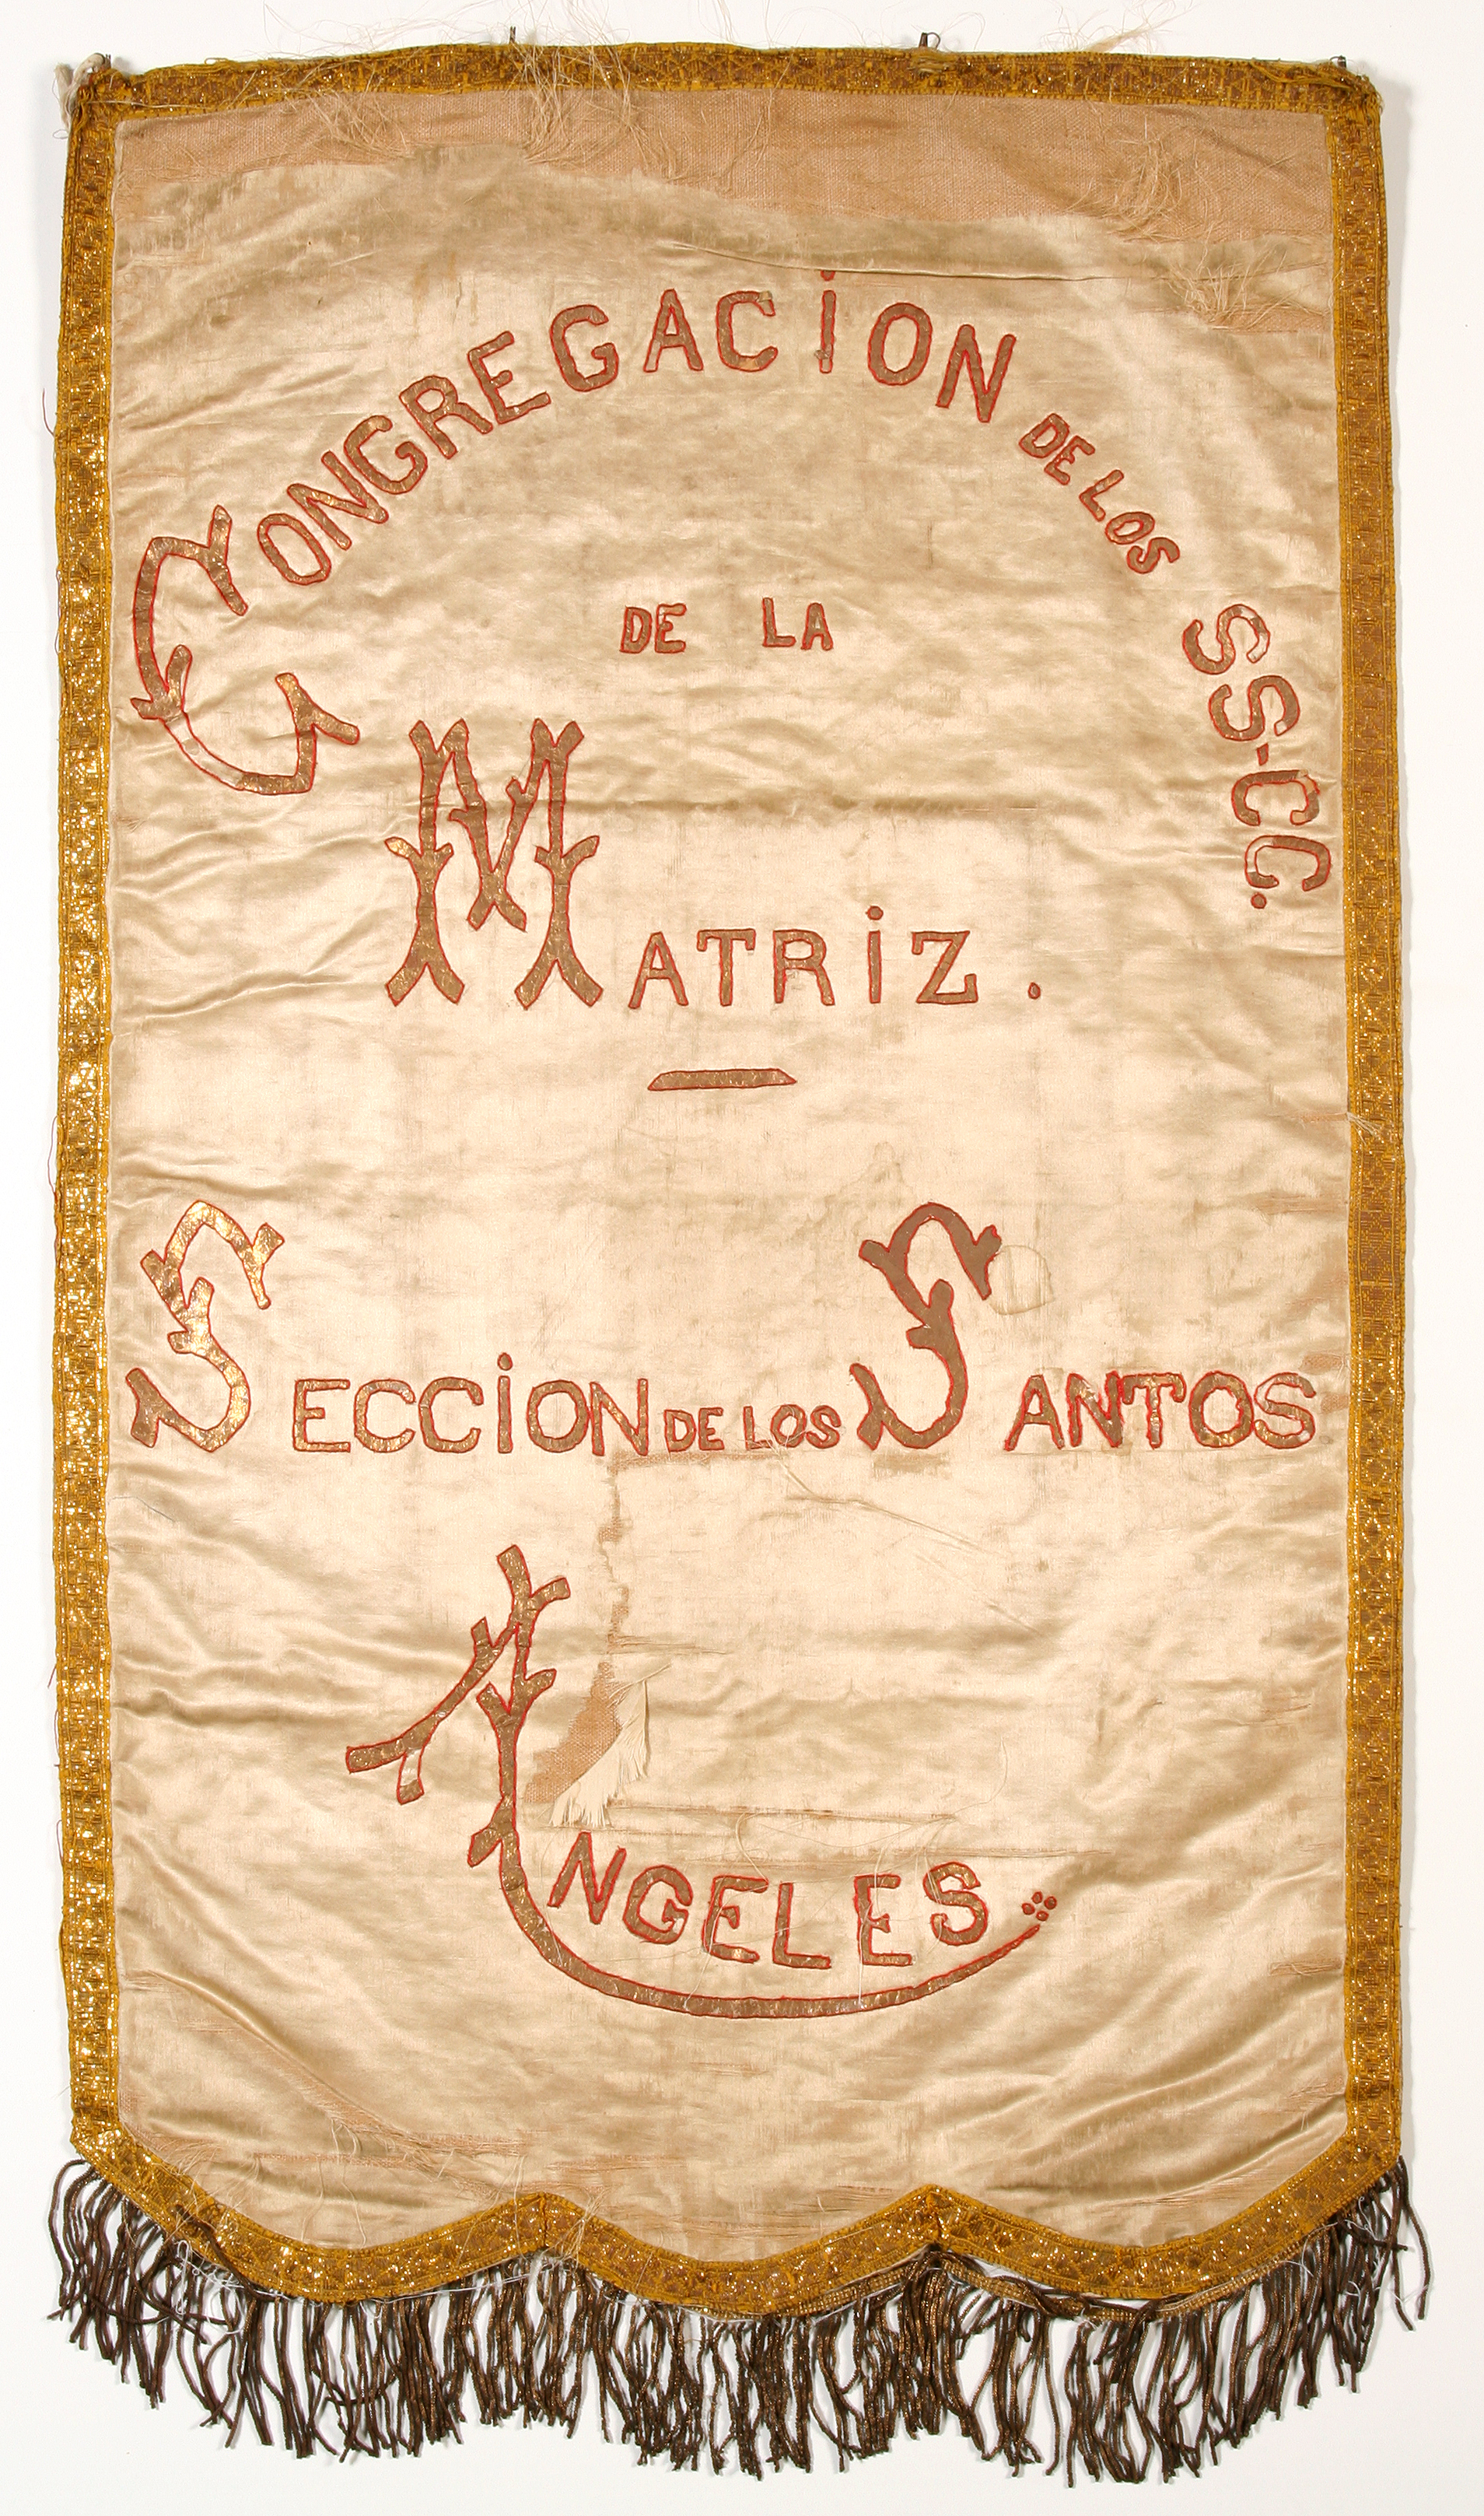 CONGREGACiON DE LOS SS-CC.
DE LA
MATRiZ.
SECCiON DE LOS SANTOS
ANGELES